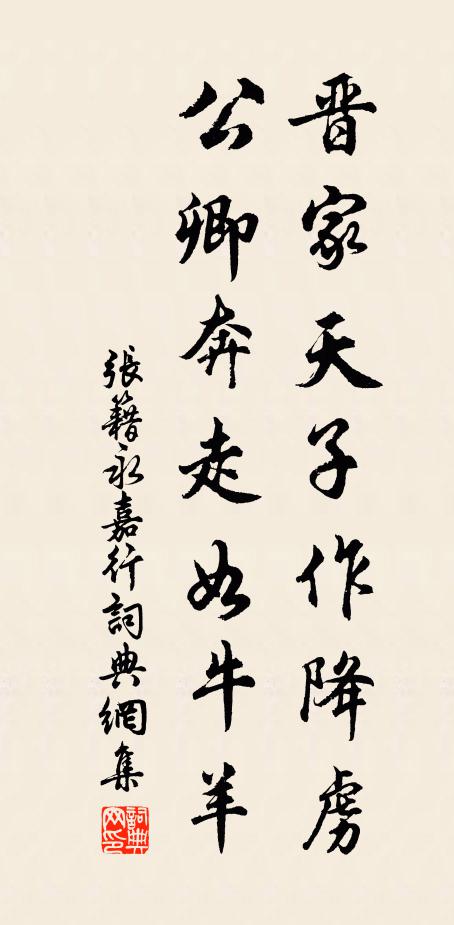 晋家天子作降虏
公卿奔走如牛羊
張籍永嘉行詞典網集
詞典网印